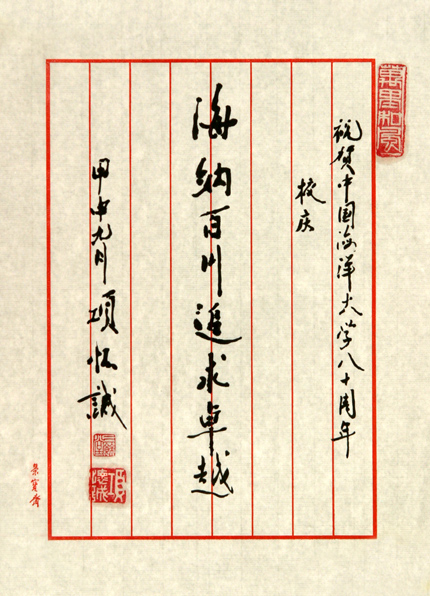 祝贺中国海洋大学八十周年
校庆
海纳百川追求卓越
甲申九月 项怀诚
项怀诚
荣宝斋